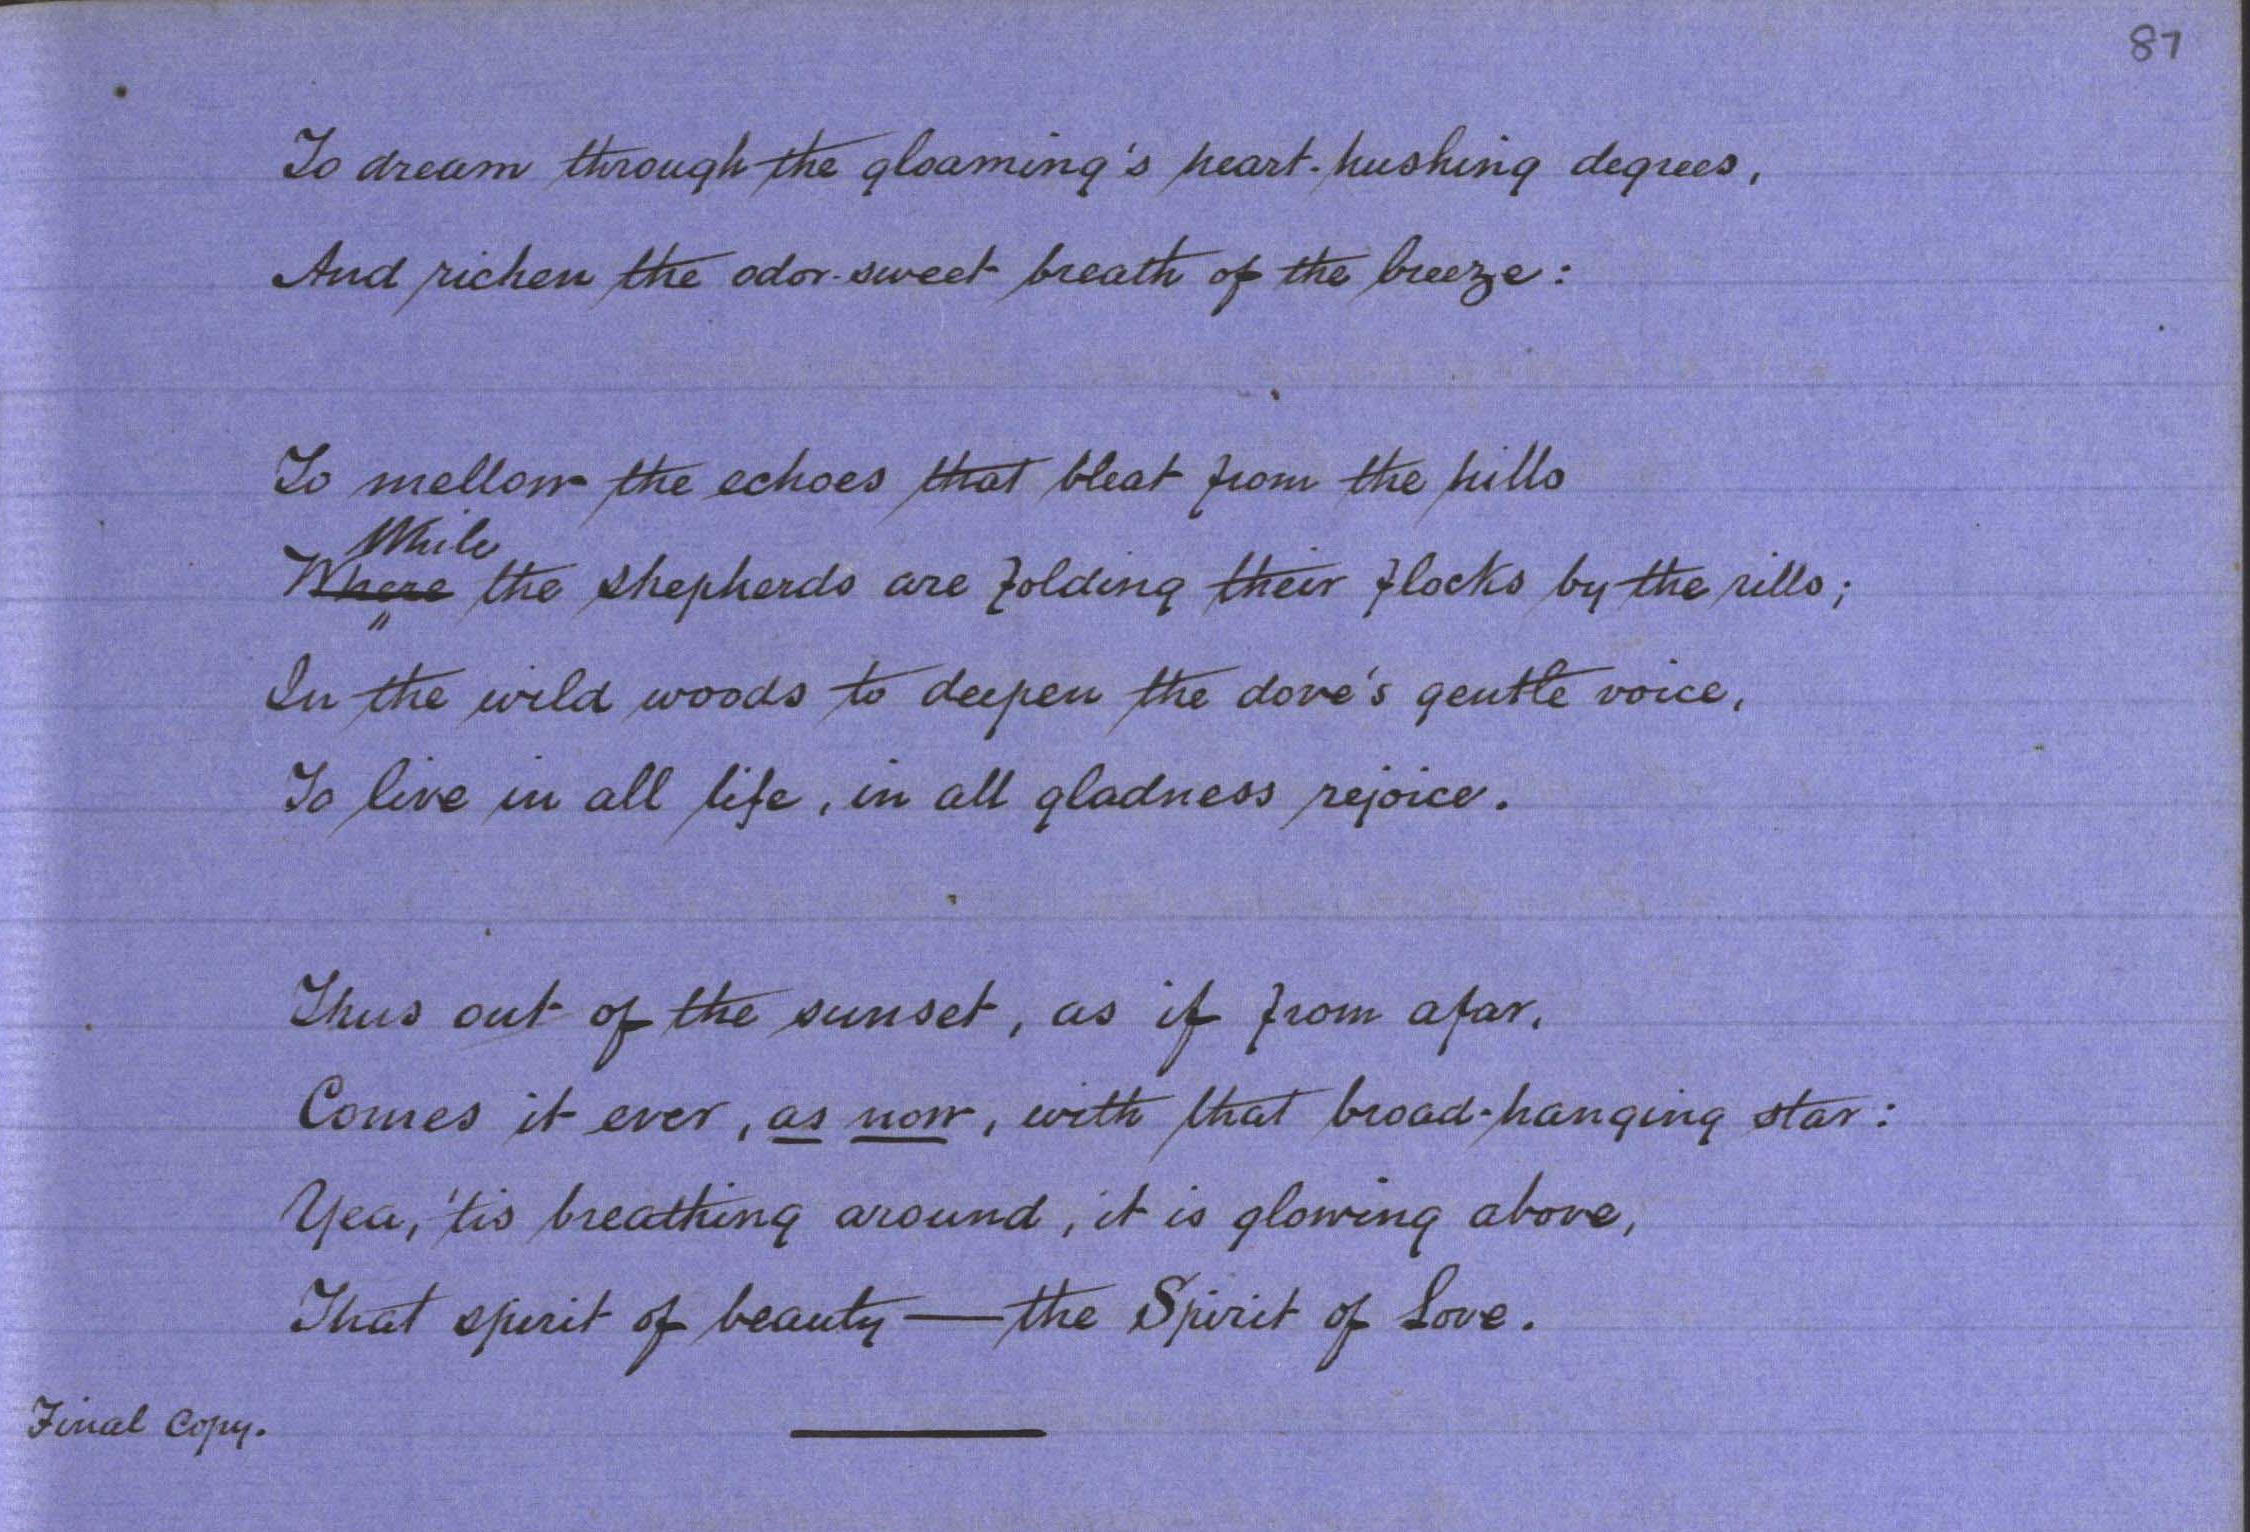 87
To dream through the gloaming's heart-hushing degrees,
And richen the odor-sweet breath of the breeze:
To mellow the echoes that bleat from the hills
While
Where the shepherds are folding their flocks by the rills;
In the wild woods to deepen the dove's gentle voice,
To live in all life, in all gladness rejoice.
Thus out of the sunset, as if from afar,
Comes it ever, as now, with that broad-hanging star:
Yea, 'tis breathing around, it is glowing above,
That spirit of beauty — the Spirit of Love.
Final Copy.